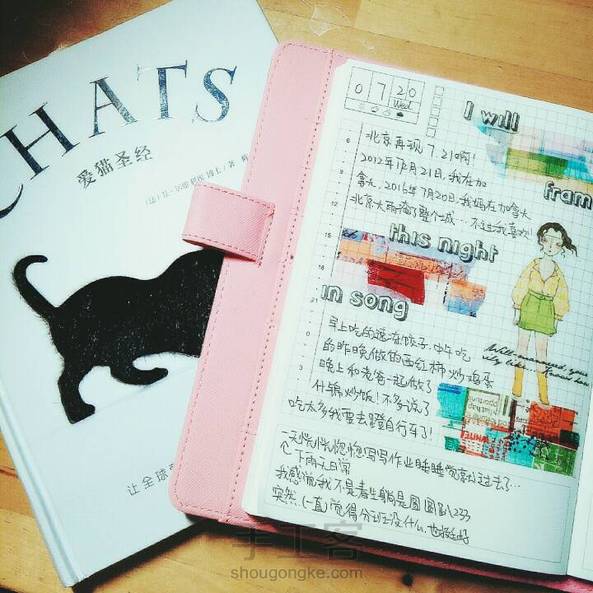 CHATS
爱猫圣经
让全球
0 7 20
Wed
I will
北京再现 7.21啊!
2012年7月21日,我在加
拿大,2016年7月20日,我妈在加拿大
北京大雨淹了整个城…不过我喜欢!
fram
this night
in song
早上吃的速冻饺子,中午吃
的昨晚做的西红柿炒鸡蛋
晚上和老爸一起做了
什锦炒饭!不多说了
吃太多我要去蹬自行车了!
一天恍恍惚惚写写作业睡睡觉就过去了…
个下雨天日常
我感觉我不是养生躺是圆圆趴233
突然(一直)觉得分班没什么,也挺好
手工客
shougongke.com